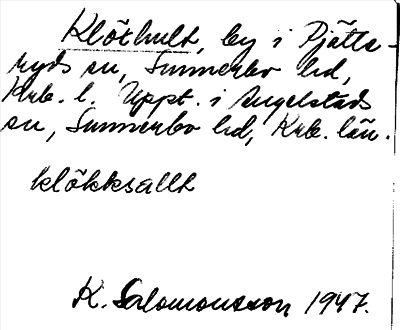 Klöxhult, by i Pjätte-
ryds sn, Sunnerbo hd,
Krb. l. Uppt. i Angelstads
sn, Sunnerbo hd, Krb. län.
klökksallt
K. Salomonsson 1947.